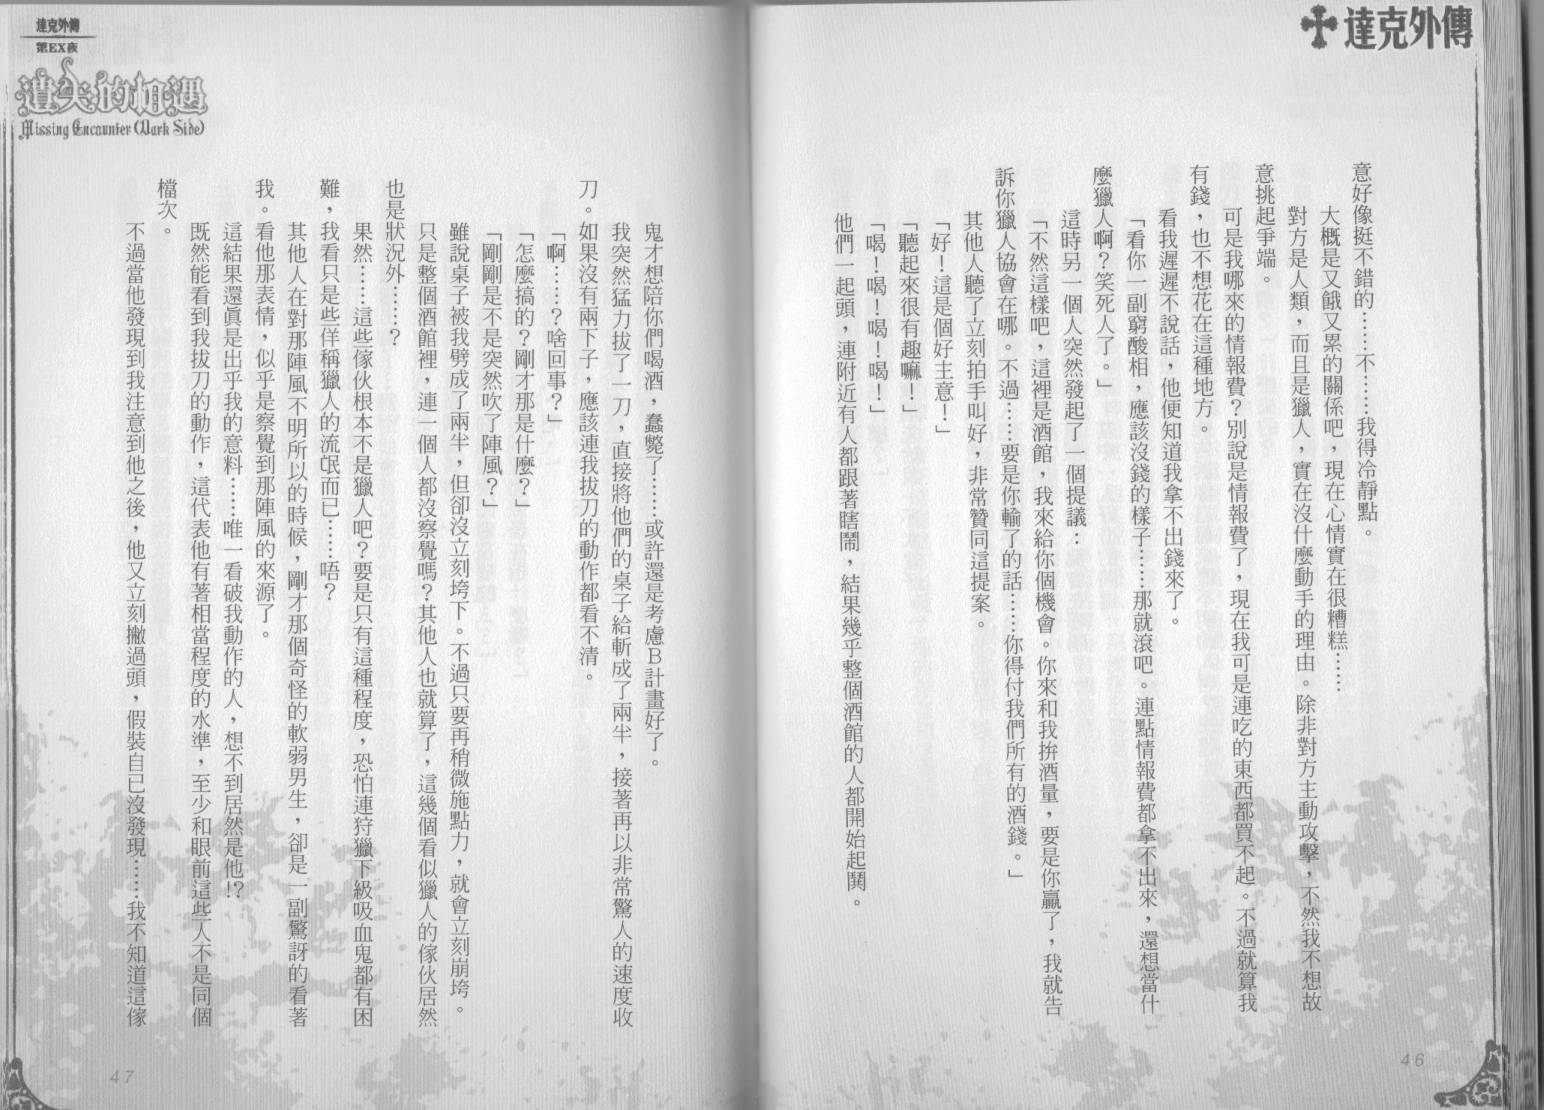 達克外傳
意好像挺不錯的……不……我得冷靜點。
大概是又餓又累的關係吧，現在心情實在很糟糕……
對方是人類，而且是獵人，實在沒什麼動手的理由。除非對方主動攻擊，不然我不想故
意挑起爭端。
可是我哪來的情報費？別說是情報費了，現在我可是連吃的東西都買不起。不過就算我
有錢，也不想花在這種地方。
看我遲遲不說話，他便知道我拿不出錢來了。
「看你一副窮酸相，應該沒錢的樣子……那就滾吧。連點情報費都拿不出來，還想當什
麼獵人啊？笑死人了。」
這時另一個人突然發起了一個提議：
「不然這樣吧，這裡是酒館，我來給你個機會。你來和我拚酒量，要是你贏了，我就告
訴你獵人協會在哪。不過……要是你輸了的話……你得付我們所有的酒錢。」
其他人聽了立刻拍手叫好，非常贊同這提案。
「好！這是個好主意！」
「聽起來很有趣嘛！」
「喝！喝！喝！喝！」
他們一起頭，連附近有人都跟著瞎鬧，結果幾乎整個酒館的人都開始起鬨。
46
達克外傳
第EX夜
遺失的相遇
Missing Encounter (Dark Side)
鬼才想陪你們喝酒，蠢斃了……或許還是考慮B計畫好了。
我突然猛力拔了一刀，直接將他們的桌子給斬成了兩半，接著再以非常驚人的速度收
刀。如果沒有兩下子，應該連我拔刀的動作都看不清。
「啊……？啥回事？」
「怎麼搞的？剛才那是什麼？」
「剛剛是不是突然吹了陣風？」
雖說桌子被我劈成了兩半，但卻沒立刻垮下。不過只要再稍微施點力，就會立刻崩垮。
只是整個酒館裡，連一個人都沒察覺嗎？其他人也就算了，這幾個看似獵人的傢伙居然
也是狀況外……？
果然……這些傢伙根本不是獵人吧？要是只有這種程度，恐怕連狩獵下級吸血鬼都有困
難，我看只是些佯稱獵人的流氓而已……唔？
其他人在對那陣風不明所以的時候，剛才那個奇怪的軟弱男生，卻是一副驚訝的看著
我。看他那表情，似乎是察覺到那陣風的來源了。
這結果還真是出乎我的意料……唯一看破我動作的人，想不到居然是他!?
既然能看到我拔刀的動作，這代表他有著相當程度的水準，至少和眼前這些人不是同個
檔次。
不過當他發現到我注意到他之後，他又立刻撇過頭，假裝自己沒發現……我不知道這傢
47